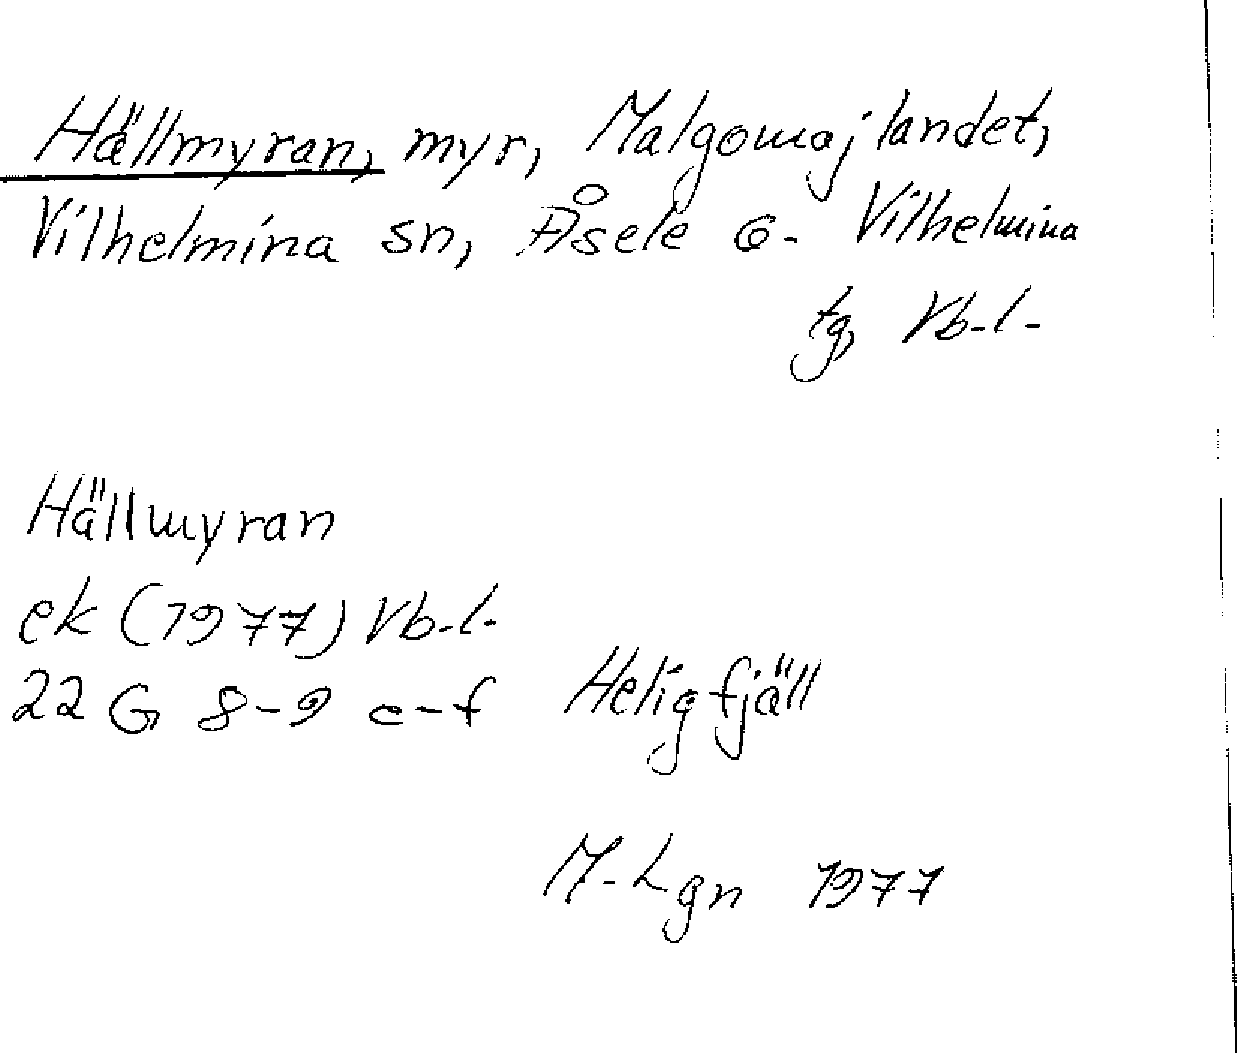 Hällmyran, myr, Malgomajlandet,
Vilhelmina sn, Åsele G. Vilhelmina
tg, Vb-l-
Hällmyran
ek (1977) Vb-l-
22 G 8-9 e-f Heligfjäll
M-Lgn 1977